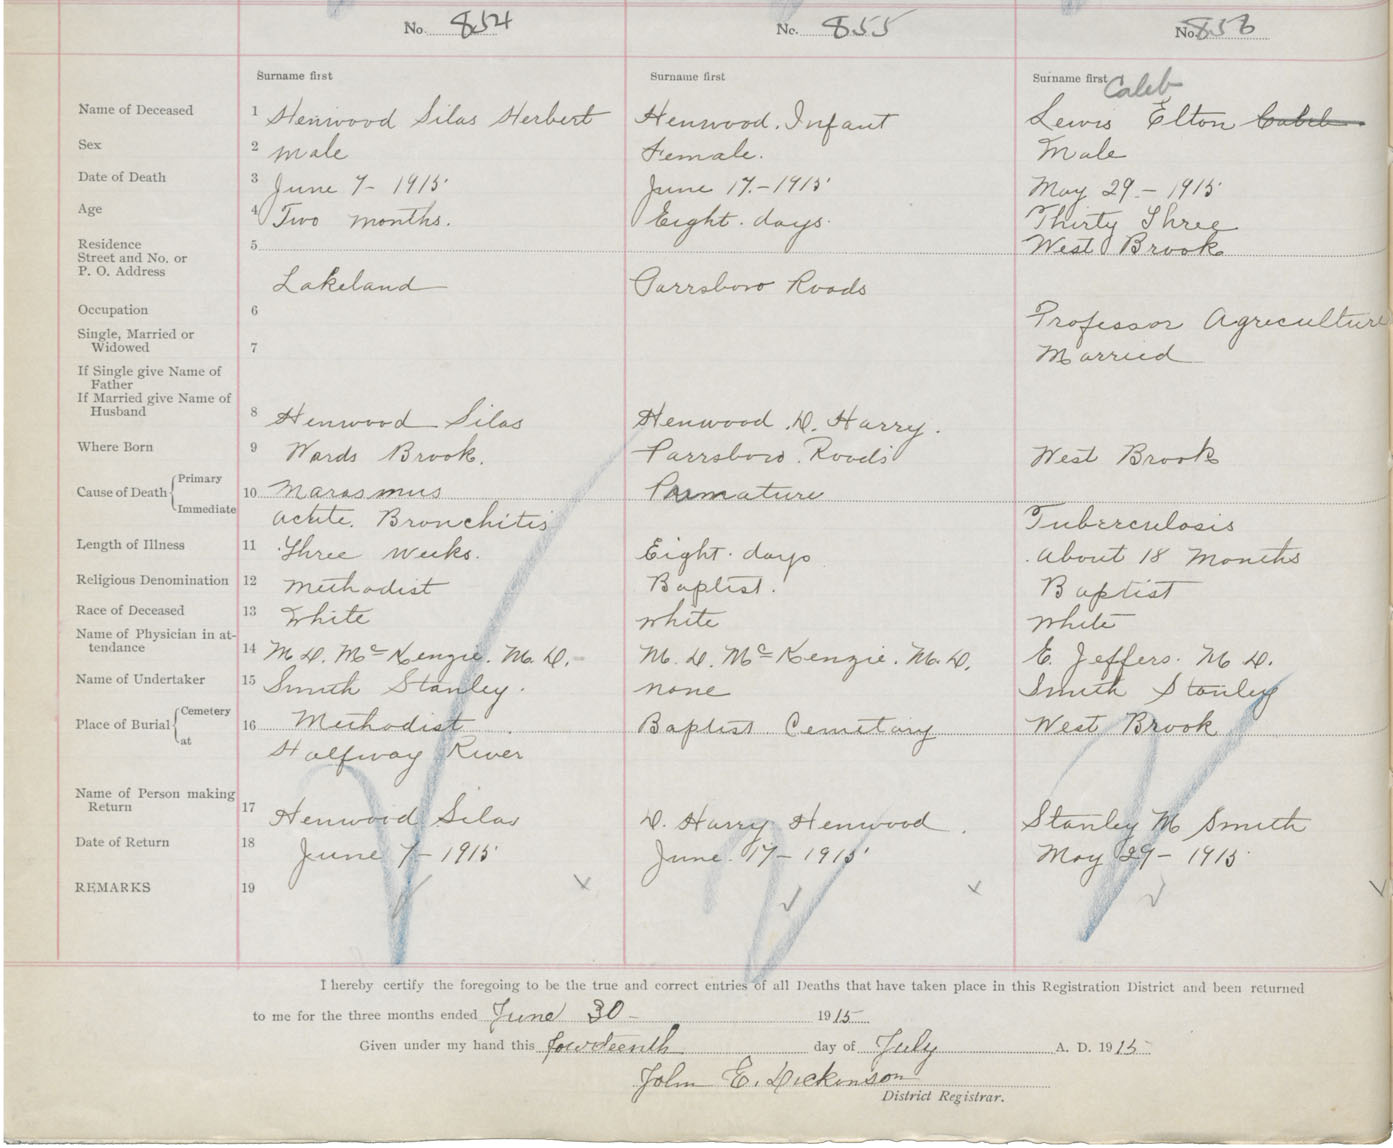 No. 854 No. 855 No. 856
Surname first Surname first Surname first Caleb
Name of Deceased 1 Henwood Silas Herbert Henwood. Infant Lewis Elton Caleb
Sex 2 male Female. Male
Date of Death 3 June 7 - 1915 June 17. - 1915 May 29 - 1915
Age 4 Two months. Eight. days. Thirty Three
Residence 5 West Brook
Street and No. or
P. O. Address Lakeland Parrsboro Roads
Occupation 6 Professor Agriculture
Single, Married or
Widowed 7 Married
If Single give Name of
Father
If Married give Name of
Husband 8 Henwood Silas Henwood. D. Harry.
Where Born 9 Wards Brook. Parrsboro. Roads West Brook
Cause of Death Primary 10 Marasmus Premature
Immediate acute. Bronchitis Tuberculosis
Length of Illness 11 Three weeks. Eight. days. About 18 Months
Religious Denomination 12 Methodist Baptist. Baptist
Race of Deceased 13 White white white
Name of Physician in at-
tendance 14 M. D. McKenzie. M. D. M. D. McKenzie. M. D. E. Jeffers. M D.
Name of Undertaker 15 Smith Stanley. none Smith Stanley
Place of Burial Cemetery 16 Methodist Baptist Cemetary West Brook
at Halfway River
Name of Person making
Return 17 Henwood Silas D. Harry Henwood. Stanley M Smith
Date of Return 18 June 7 - 1915 June. 17 - 1915 May 29 - 1915
REMARKS 19
I hereby certify the foregoing to be the true and correct entries of all Deaths that have taken place in this Registration District and been returned
to me for the three months ended June 30 - 1915
Given under my hand this fourteenth day of July A. D. 1915
John E. Dickinson
District Registrar.